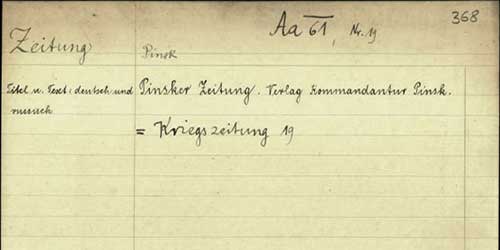 368
Aa 61, Nr. 19
Zeitung
Pinsk
Titel u. Text: deutsch und
russisch
Pinsker Zeitung. Verlag Kommandantur Pinsk.
= Kriegszeitung 19